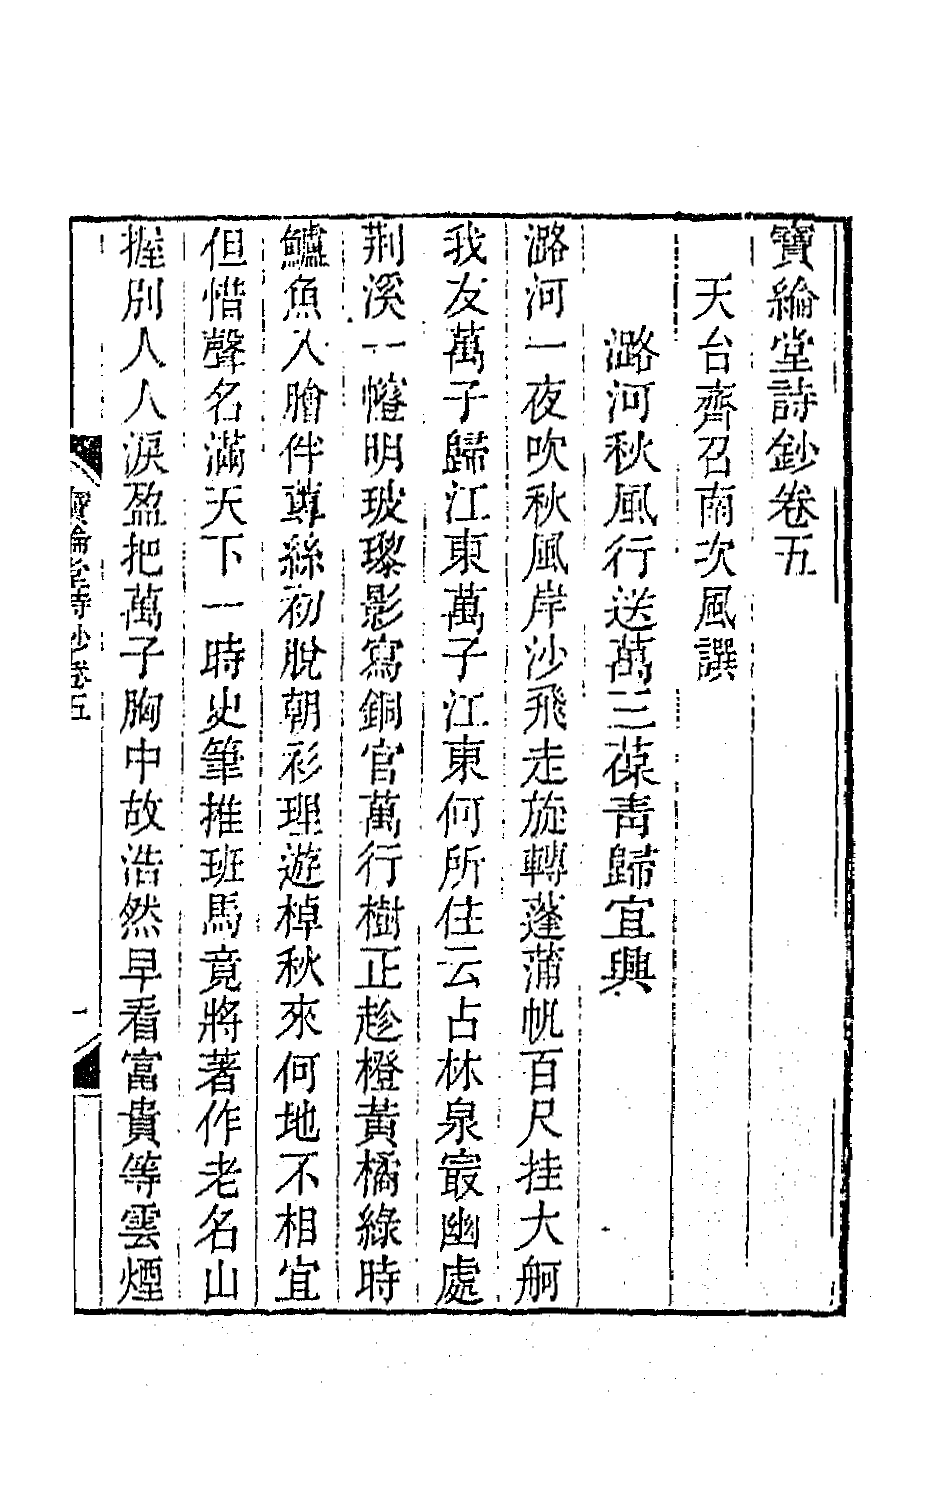 寶綸堂詩鈔卷五
天台齊召南次風譔
潞河秋風行送萬三葆青歸宜興
潞河一夜吹秋風岸沙飛走旋轉蓬蒲帆百尺挂大舸
我友萬子歸江東萬子江東何所住云占林泉㝡幽處
荆溪一幰明玻瓈影寫銅官萬行樹正趁橙黃橘綠時
鱸魚入膾伴蓴絲初脫朝衫理遊棹秋來何地不相宜
但惜聲名滿天下一時史筆推班馬竟將著作老名山
握別人人淚盈把萬子胸中故浩然早看富貴等雲煙
寶綸堂詩鈔卷五
一